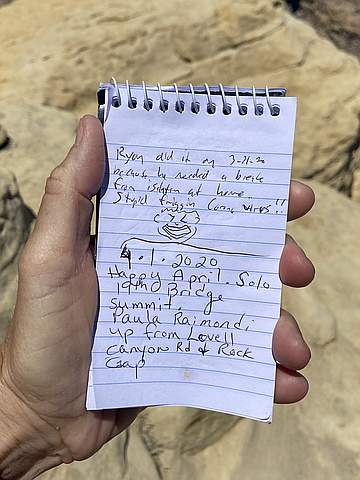 Ryan did it on 3-11-20
because he needed a break
from isolation at home.
Stupid friggin Corona virus!!
4.1.2020
Happy April. Solo
19th Bridge
summit.
Paula Raimondi
up from Lovell
Canyon Rd & Rock
Gap